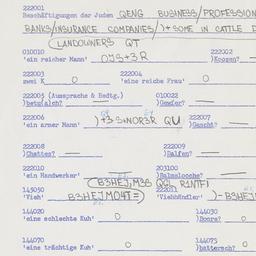 222001
Beschäftigungen der Juden QENG BUSINESS/PROFESSION
BANKS/INSURANCE COMPANIES/)+SOME IN CATTLE
(LANDOWNERS QT
010010 222002
'ein reicher Mann' )Kozen?
222003 222004
zwei K O 'eine reiche Frau' O
222005 (Aussprache & Bedtg.) 010022
)betu(ai)ch? )Gewier?
222006 222007
'ein armer Mann' QU )Dascht?
222008 222009
)Chattes? )Dalfen?
222010 203100
'ein Handwerker' )Balmelooche?
(B3HEJM3S QGL
143030 222011
'Vieh' B3HEJMOHT=) 'Viehhändler'
144020 144030
'eine schlechte Kuh' O )Boore? O
144070 144075
'eine trächtige Kuh' O